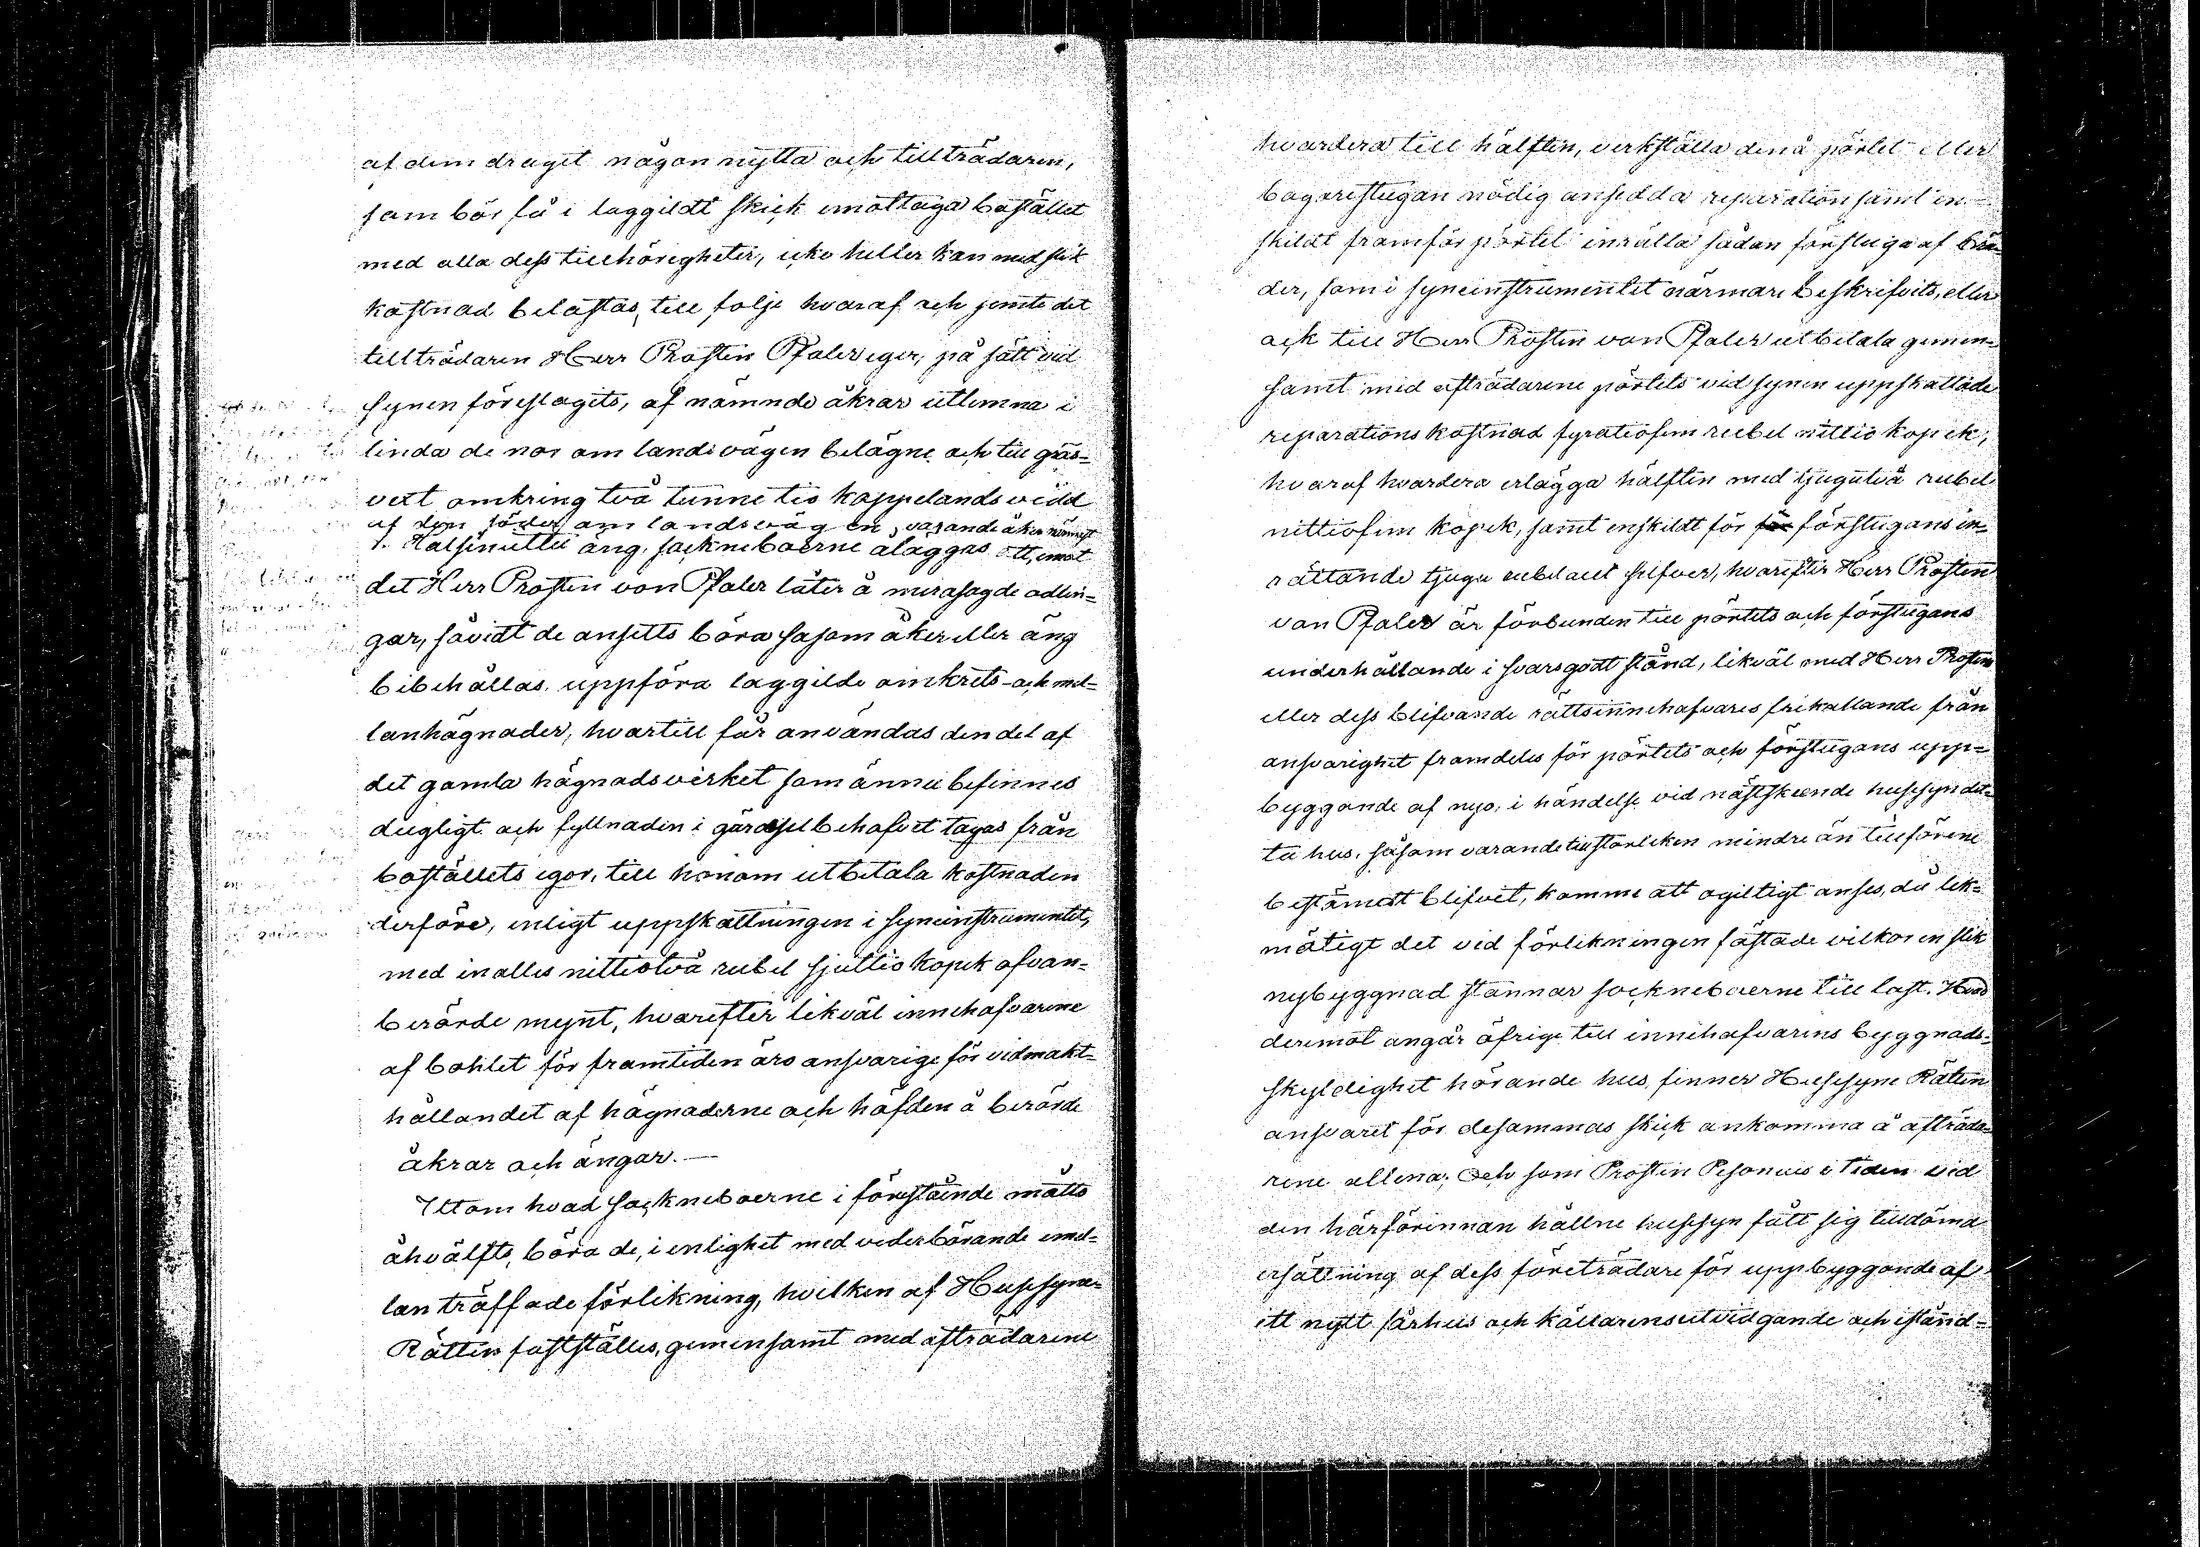 af dem draget någon nytta och tillträdaren,
som bör få i laggildt skick emottaga bostället
med alla dess tillhörigheter, icke heller kan med slik
kostnad belastas, till följe hvaraf och jemte det
tillträdaren Herr Prosten Pfaler eger, på sätt vid
synen föreslagits, af nämnde åkrar utlemna i
linda de nor om landsvägen belägne och till gräs-
vext omkring två tunne tio kappelands vidd
af den söder om landsvägen, varande åker närmast
t. Halsinultti äng, sockneboerne åläggas att, emot
det Herr Prosten von Pfaler låter å merasagde odlin-
gar, såvidt de ansetts böra såsom åker eller äng
bibehållas, uppföra laggilde omkrets- och mel-
lanhägnader, hvartill får användas den del af
det gamla hägnadsvirket som ännu befinnes
dugligt och fyllnaden i gärdselbehofvet tagas från
boställets egor, till honom utbetala kostnaden
derföre, enligt uppskattningen i syneinstrumentet,
med inalles nittiotvå rubel sjuttio kopek ofvan-
berörde mynt, hvarefter likväl innehafvarene
af bohlet för framtiden äro ansvarige för vidmakt-
hållandet af hägnaderne och häfden å berörde
åkrar och ängar.—
Utom hvad sockneboerne i förestående måtto
åhvälfts, böra de, i enlighet med vederbörande emel-
lan träffade förlikning, hvilken af Husesyns-
Rätten fastställes, gemensamt med afträdarene
hvardera till hälften, verkställa den å pörtet eller
bagarestugan nödig ansedda reparation samt en-
skildt framför pörtet inrätta sådan förstuga af brä-
der, som i syneinstrumentet närmare beskrifvits, eller
ock till Herr Prosten von Pfaler utbetala gemen-
samt med afträdarene pörtets vid synen uppskattade
reparations kostnad fyratiofem rubel nittio kopek,
hvaraf hvardera erlägga hälften med tjugutvå rubel
nittiofem kopek, samt enskildt för för förstugans in-
rättande tjugu rubel allt silfver, hvarefter Herr Prosten
von Pfaler är förbunden till pörtets och förstugans
underhållande i svarsgodt stånd, likväl med Herr Prosten
eller dess blifvande rättsinnehafvares frikallande från
ansvarighet framdeles för pörtets och förstugans upp-
byggande af nyo, i händelse vid nästskeende husesyn det-
ta hus, såsom varande till storleken mindre än tillförene
bestämdt blifvit, komme att ogiltigt anses, då lik-
mätigt det vid förlikningen fästade vilkor en slik
nybyggnad stannar sockneboerne till last. Hvad
deremot angår öfrige till innehafvarens byggnads-
skyldighet hörande hus, finner Husesyns Rätten
ansvaret för desammas skick ankomma å afträda-
rene allena; Och som Prosten Pesonius i tiden vid
den härförinnan hållne husesyn fått sig tilldömd
ersättning af dess företrädare för uppbyggande af
ett nytt fårhus och källarens utvidgande och istånd-